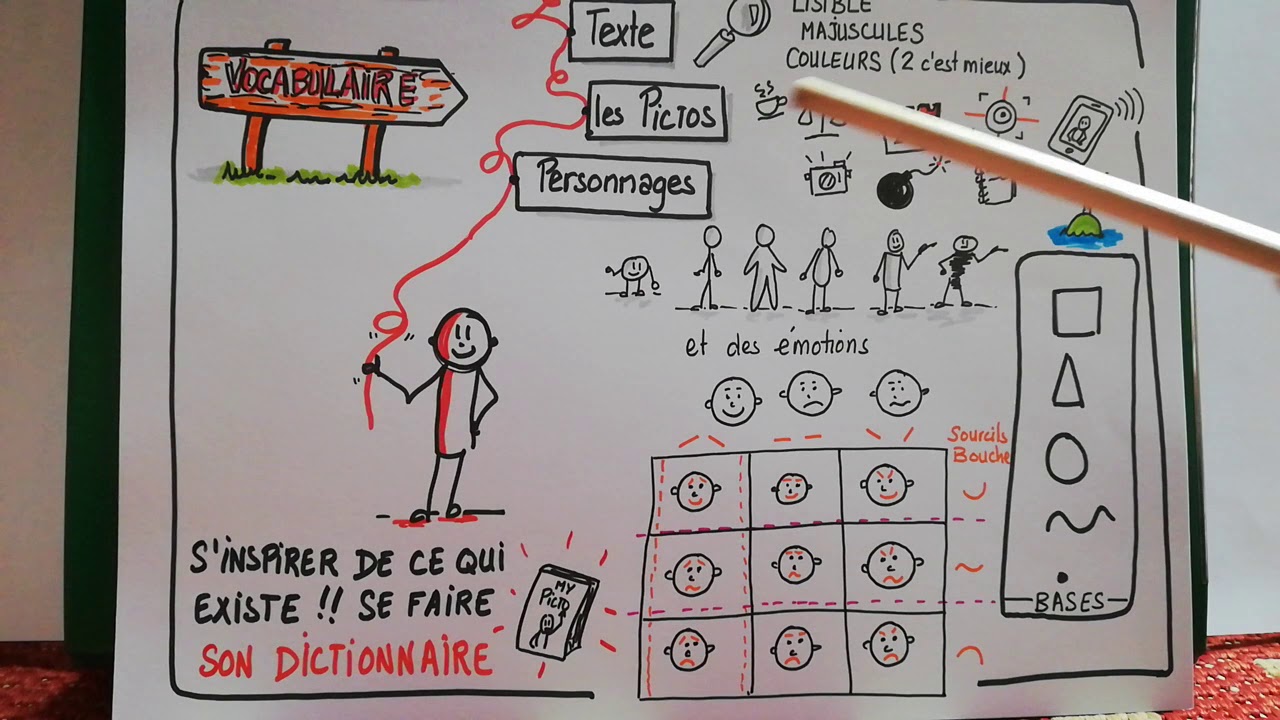 VOCABULAIRE
Texte
LISIBLE
MAJUSCULES
COULEURS (2 c'est mieux)
les PICTOS
Personnages
et des émotions
Sourcils
Bouche
BASES
S'INSPIRER DE CE QUI
EXISTE !! SE FAIRE
SON DICTIONNAIRE
MY
PICTO